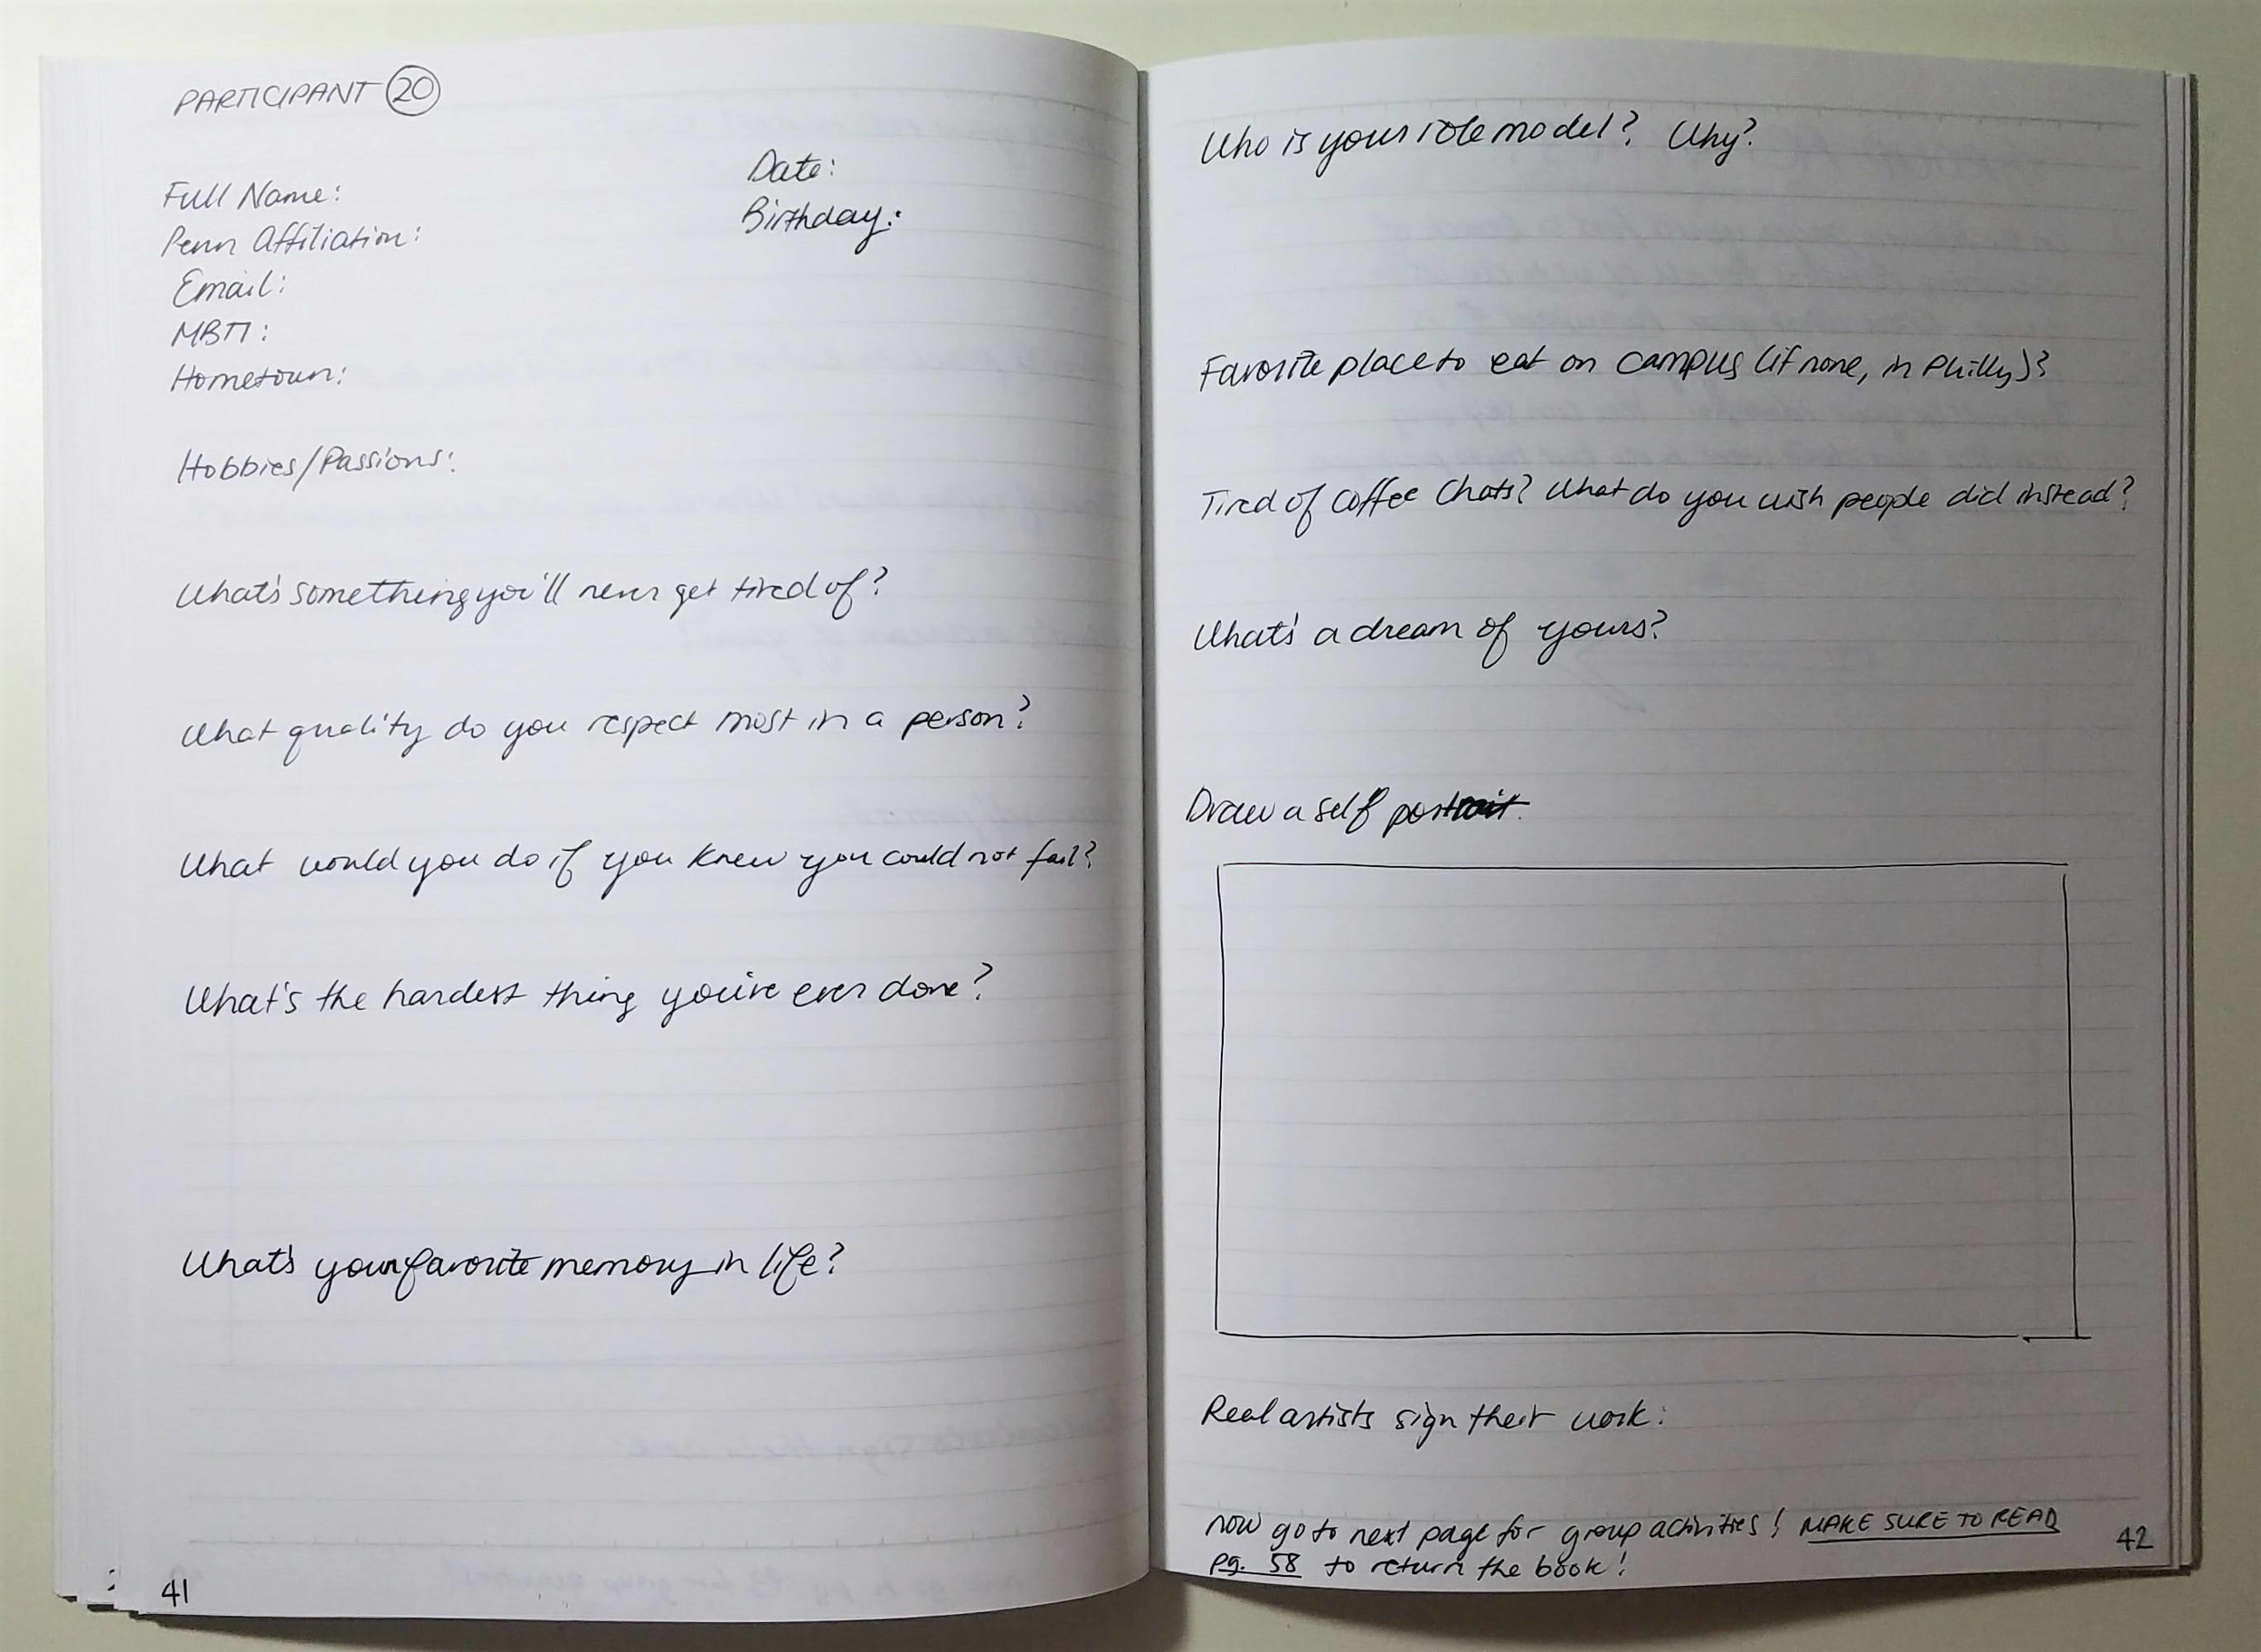 PARTICIPANT 20
Date:
Full Name:
Birthday:
Penn Affiliation:
Email:
MBTI:
Hometown:
Hobbies/Passions:
What's something you'll never get tired of?
What quality do you respect most in a person?
What would you do if you knew you could not fail?
What's the hardest thing you've ever done?
What's your favorite memory in life?
41
Who is your role model? Why?
Favorite place to eat on campus (if none, in Philly)?
Tired of coffee chats? What do you wish people did instead?
What's a dream of yours?
Draw a self portrait.
Real artists sign their work:
now go to next page for group activities! MAKE SURE TO READ
pg. 58 to return the book!
42